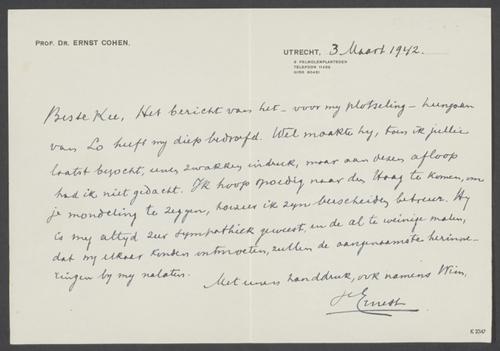 PROF. DR. ERNST COHEN.
UTRECHT, 3 Maart 1942.
TELEFOON 11486
GIRO 80421
Beste Kee, Het bericht van het – voor my plotseling – heengaan
van Lo heeft my diep bedroefd. Wel maakte hy, toen ik jullie
laatst bezocht, een zwakken indruk, maar aan dezen afloop
had ik niet gedacht. Ik hoop spoedig naar den Haag te komen, om
je mondeling te zeggen, hoezeer ik zyn verscheiden betreur. Hy
is my altyd zeer sympathiek geweest, en de al te weinige malen,
dat wy elkaar konden ontmoeten, zullen de aangenaamste herinne-
ringen by my nalaten.
Met een handdruk, ook namens Wim,
Ernst
K 3347